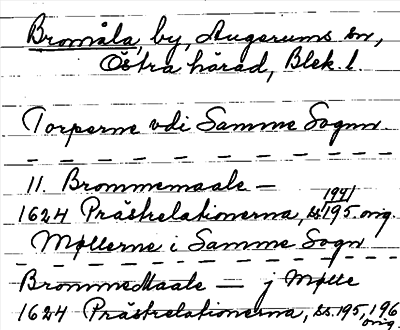 Bromåla, by, Augerums sn,
Östra härad, Blek. l.
Torperne vdi Samme Sognn.
11. Brommemaale —
1941
1624 Prästrelationerna, ss. 195. orig.
Møllerne i Samme Sogn
BrommeMaale — j Mølle
1624 Prästrelationerna, ss. 195, 196 orig.